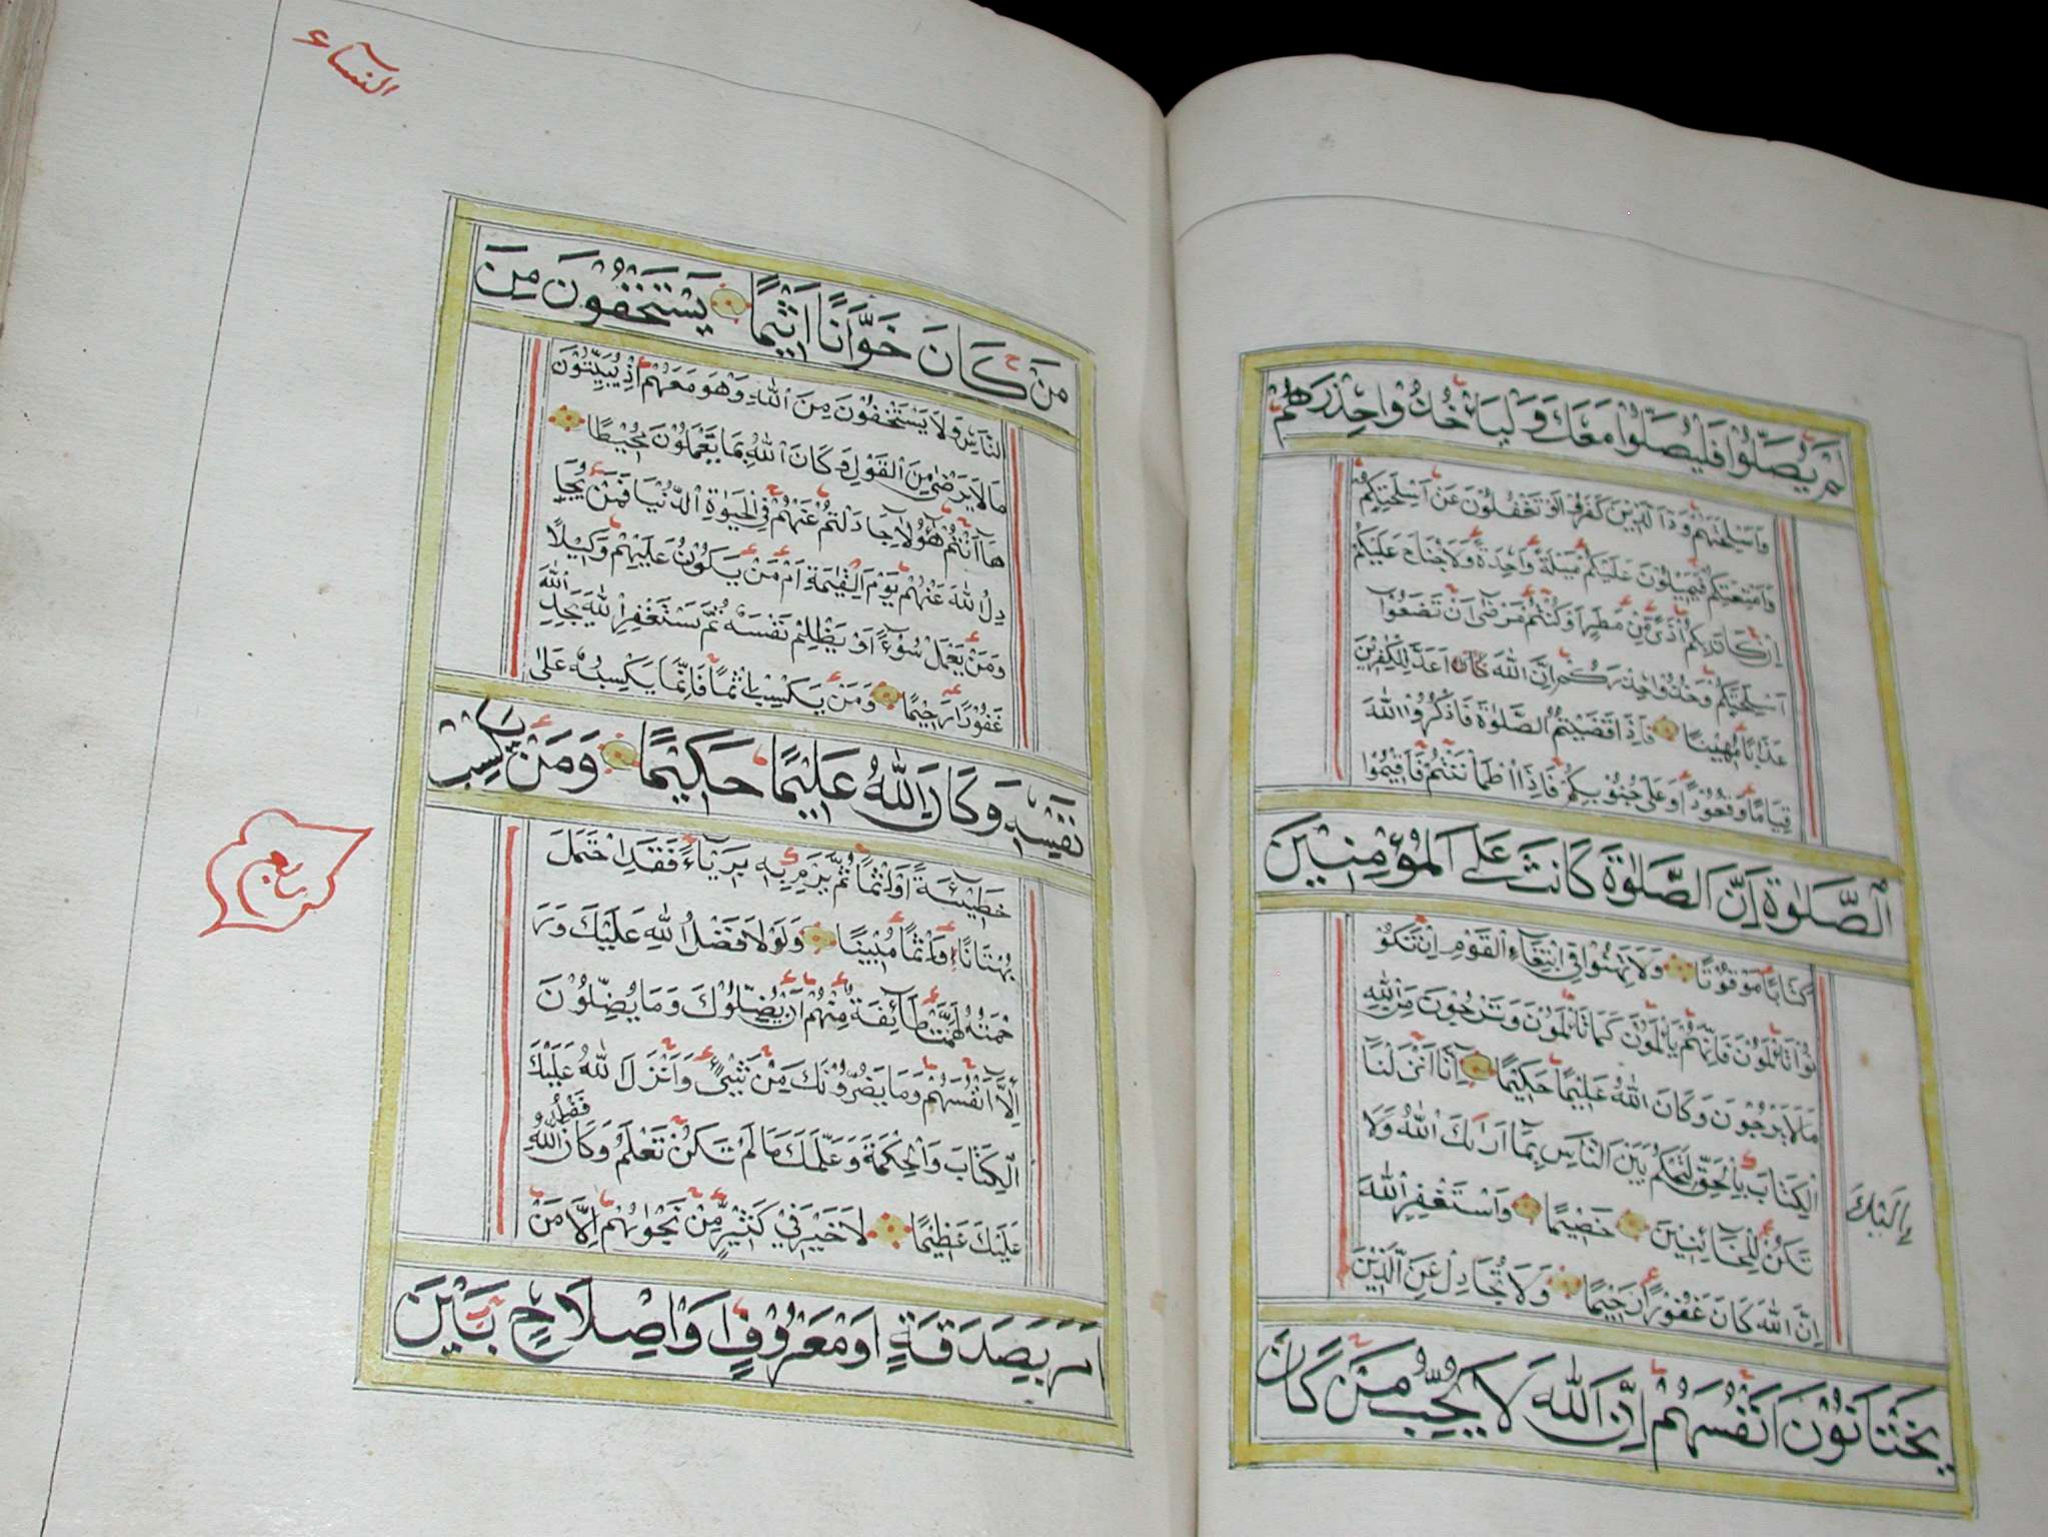 لَمْ يُصَلُّوا فَلْيُصَلُّوا مَعَكَ وَلْيَأْخُذُوا حِذْرَهُمْ
وَأَسْلِحَتَهُمْ وَدَّ الَّذِينَ كَفَرُوا لَوْ تَغْفُلُونَ عَنْ أَسْلِحَتِكُمْ
وَأَمْتِعَتِكُمْ فَيَمِيلُونَ عَلَيْكُمْ مَيْلَةً وَاحِدَةً وَلَا جُنَاحَ عَلَيْكُمْ
إِنْ كَانَ بِكُمْ أَذًى مِّن مَطَرٍ أَوْ كُنْتُمْ مَرْضَى أَنْ تَضَعُوا
أَسْلِحَتَكُمْ وَخُذُوا حِذْرَكُمْ إِنَّ اللَّهَ أَعَدَّ لِلْكَافِرِينَ
عَذَابًا مُهِينًا فَإِذَا قَضَيْتُمُ الصَّلٰوةَ فَاذْكُرُوا اللَّهَ
قِيَامًا وَقُعُودًا وَعَلَى جُنُوبِكُمْ فَإِذَا اطْمَأْنَنْتُمْ فَأَقِيمُوا
الصَّلٰوةَ إِنَّ الصَّلٰوةَ كَانَتْ عَلَى الْمُؤْمِنِينَ
كِتَابًا مَوْقُوتًا وَلَا تَهِنُوا فِي ابْتِغَاءِ الْقَوْمِ إِنْ تَكُو
نُوا تَأْلَمُونَ فَإِنَّهُمْ يَأْلَمُونَ كَمَا تَأْلَمُونَ وَتَرْجُونَ مِنَ اللَّهِ
مَا لَا يَرْجُونَ وَكَانَ اللَّهُ عَلِيمًا حَكِيمًا إِنَّا أَنْزَلْنَا
إِلَيْكَ
الْكِتَابَ بِالْحَقِّ لِتَحْكُمَ بَيْنَ النَّاسِ بِمَا أَرَاكَ اللَّهُ وَلَا
تَكُنْ لِلْخَائِنِينَ خَصِيمًا وَاسْتَغْفِرِ اللَّهَ
إِنَّ اللَّهَ كَانَ غَفُورًا رَحِيمًا وَلَا تُجَادِلْ عَنِ الَّذِينَ
يَخْتَانُونَ أَنْفُسَهُمْ إِنَّ اللَّهَ لَا يُحِبُّ مَنْ كَانَ
النساء
مَنْ كَانَ خَوَّانًا أَثِيمًا يَسْتَخْفُونَ مِنَ
النَّاسِ وَلَا يَسْتَخْفُونَ مِنَ اللَّهِ وَهُوَ مَعَهُمْ إِذْ يُبَيِّتُونَ
مَا لَا يَرْضَى مِنَ الْقَوْلِ وَكَانَ اللَّهُ بِمَا يَعْمَلُونَ مُحِيطًا
هَا أَنْتُمْ هٰؤُلَاءِ جَادَلْتُمْ عَنْهُمْ فِي الْحَيٰوةِ الدُّنْيَا فَمَنْ يُجَا
دِلُ اللَّهَ عَنْهُمْ يَوْمَ الْقِيٰمَةِ أَمْ مَنْ يَكُونُ عَلَيْهِمْ وَكِيلًا
وَمَنْ يَعْمَلْ سُوءًا أَوْ يَظْلِمْ نَفْسَهُ ثُمَّ يَسْتَغْفِرِ اللَّهَ يَجِدِ اللَّهَ
غَفُورًا رَحِيمًا وَمَنْ يَكْسِبْ إِثْمًا فَإِنَّمَا يَكْسِبُهُ عَلَى
نَفْسِهِ وَكَانَ اللَّهُ عَلِيمًا حَكِيمًا وَمَنْ يَكْسِبْ
خَطِيئَةً أَوْ إِثْمًا ثُمَّ يَرْمِ بِهِ بَرِيئًا فَقَدِ احْتَمَلَ
بُهْتَانًا وَإِثْمًا مُبِينًا وَلَوْلَا فَضْلُ اللَّهِ عَلَيْكَ وَرَ
حْمَتُهُ لَهَمَّتْ طَائِفَةٌ مِنْهُمْ أَنْ يُضِلُّوكَ وَمَا يُضِلُّونَ
إِلَّا أَنْفُسَهُمْ وَمَا يَضُرُّونَكَ مِنْ شَيْءٍ وَأَنْزَلَ اللَّهُ عَلَيْكَ
الْكِتَابَ وَالْحِكْمَةَ وَعَلَّمَكَ مَا لَمْ تَكُنْ تَعْلَمُ وَكَانَ فَضْلُ اللَّهِ
عَلَيْكَ عَظِيمًا لَا خَيْرَ فِي كَثِيرٍ مِّنْ نَجْوَاهُمْ إِلَّا مَنْ
أَمَرَ بِصَدَقَةٍ أَوْ مَعْرُوفٍ أَوْ إِصْلَاحٍ بَيْنَ